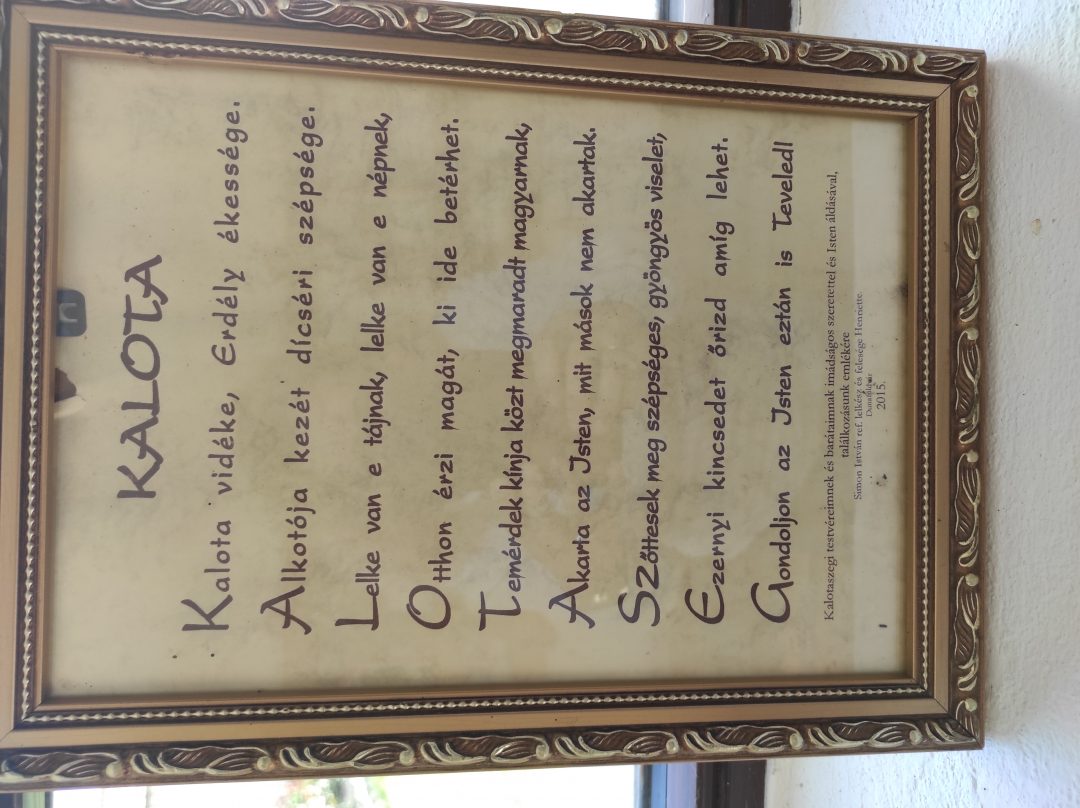 KALOTA
Kalota vidéke, Erdély ékessége.
Alkotója kezét dícséri szépsége.
Lelke van e tájnak, lelke van e népnek,
Otthon érzi magát, ki ide betérhet.
Temérdek kínja közt megmaradt magyarnak,
Akarta az Isten, mit mások nem akartak.
SZőttesek meg szépséges, gyöngyös viselet,
Ezernyi kincsedet őrizd amíg lehet.
Gondoljon az Isten eztán is Teveled!
Kalotaszegi testvéreimnek és barátaimnak imádságos szeretettel és Isten áldásával,
találkozásunk emlékére
Simon István ref. lelkész és felesége Henriette
2015.